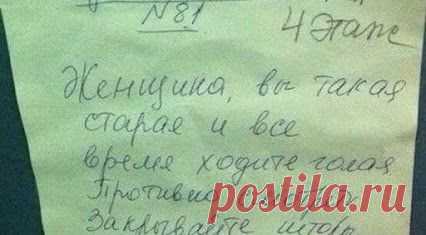 №81
4 Этаж
Женщина, вы такая
старая и все
время ходите голая
Противно смотреть
Закрывайте шторы
postila.ru